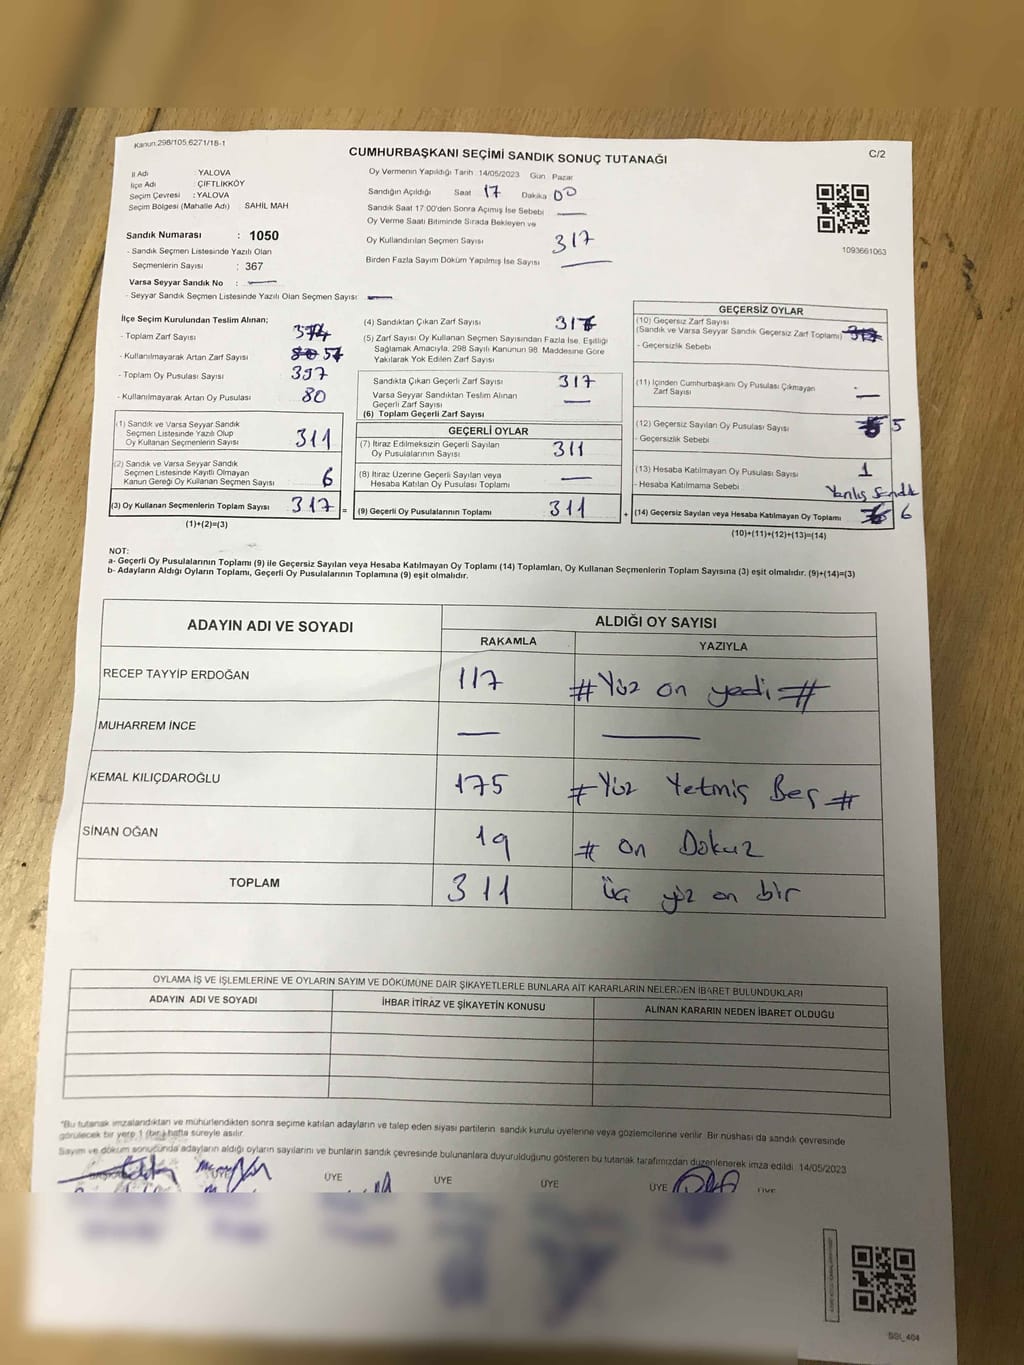 Kanun:298/105,6271/18-1
C/2
CUMHURBAŞKANI SEÇİMİ SANDIK SONUÇ TUTANAĞI
İl Adı : YALOVA
İlçe Adı : ÇİFTLİKKÖY
Seçim Çevresi : YALOVA
Seçim Bölgesi (Mahalle Adı) : SAHİL MAH
Sandık Numarası : 1050
- Sandık Seçmen Listesinde Yazılı Olan
Seçmenlerin Sayısı : 367
Varsa Seyyar Sandık No : —
- Seyyar Sandık Seçmen Listesinde Yazılı Olan Seçmen Sayısı : —
Oy Vermenin Yapıldığı Tarih : 14/05/2023 Gün : Pazar
Sandığın Açıldığı Saat 17 Dakika 00
Sandık Saat 17:00'den Sonra Açımış İse Sebebi —
Oy Verme Saati Bitiminde Sırada Bekleyen ve
Oy Kullandırılan Seçmen Sayısı 317
Birden Fazla Sayım Döküm Yapılmış İse Sayısı —
1093661063
İlçe Seçim Kurulundan Teslim Alınan;
- Toplam Zarf Sayısı
- Kullanılmayarak Artan Zarf Sayısı 57
- Toplam Oy Pusulası Sayısı 397
- Kullanılmayarak Artan Oy Pusulası 80
(1) Sandık ve Varsa Seyyar Sandık
Seçmen Listesinde Yazılı Olup
Oy Kullanan Seçmenlerin Sayısı 311
(2) Sandık ve Varsa Seyyar Sandık
Seçmen Listesinde Kayıtlı Olmayan
Kanun Gereği Oy Kullanan Seçmen Sayısı 6
(3) Oy Kullanan Seçmenlerin Toplam Sayısı 317 =
(1)+(2)=(3)
(4) Sandıktan Çıkan Zarf Sayısı 317
(5) Zarf Sayısı Oy Kullanan Seçmen Sayısından Fazla İse, Eşitliği
Sağlamak Amacıyla, 298 Sayılı Kanunun 98. Maddesine Göre
Yakılarak Yok Edilen Zarf Sayısı
Sandıkta Çıkan Geçerli Zarf Sayısı 317
Varsa Seyyar Sandıktan Teslim Alınan
Geçerli Zarf Sayısı —
(6) Toplam Geçerli Zarf Sayısı
GEÇERLİ OYLAR
(7) İtiraz Edilmeksizin Geçerli Sayılan
Oy Pusulalarının Sayısı 311
(8) İtiraz Üzerine Geçerli Sayılan veya
Hesaba Katılan Oy Pusulası Toplamı —
(9) Geçerli Oy Pusulalarının Toplamı 311 +
GEÇERSİZ OYLAR
(10) Geçersiz Zarf Sayısı
(Sandık ve Varsa Seyyar Sandık Geçersiz Zarf Toplamı)
- Geçersizlik Sebebi
(11) İçinden Cumhurbaşkanı Oy Pusulası Çıkmayan
Zarf Sayısı —
(12) Geçersiz Sayılan Oy Pusulası Sayısı 5
- Geçersizlik Sebebi
(13) Hesaba Katılmayan Oy Pusulası Sayısı 1
- Hesaba Katılmama Sebebi Yanlış Sandık
(14) Geçersiz Sayılan veya Hesaba Katılmayan Oy Toplamı 6
(10)+(11)+(12)+(13)=(14)
NOT:
a- Geçerli Oy Pusulalarının Toplamı (9) ile Geçersiz Sayılan veya Hesaba Katılmayan Oy Toplamı (14) Toplamları, Oy Kullanan Seçmenlerin Toplam Sayısına (3) eşit olmalıdır. (9)+(14)=(3)
b- Adayların Aldığı Oyların Toplamı, Geçerli Oy Pusulalarının Toplamına (9) eşit olmalıdır.
ADAYIN ADI VE SOYADI
ALDIĞI OY SAYISI
RAKAMLA YAZIYLA
RECEP TAYYİP ERDOĞAN 117 # Yüz on yedi #
MUHARREM İNCE — —
KEMAL KILIÇDAROĞLU 175 # Yüz Yetmiş Beş #
SİNAN OĞAN 19 # on Dokuz
TOPLAM 311 üç yüz on bir
OYLAMA İŞ VE İŞLEMLERİNE VE OYLARIN SAYIM VE DÖKÜMÜNE DAİR ŞİKAYETLERLE BUNLARA AİT KARARLARIN NELERDEN İBARET BULUNDUKLARI
ADAYIN ADI VE SOYADI İHBAR İTİRAZ VE ŞİKAYETİN KONUSU ALINAN KARARIN NEDEN İBARET OLDUĞU
*Bu tutanak imzalandıktan ve mühürlendikten sonra seçime katılan adayların ve talep eden siyasi partilerin sandık kurulu üyelerine veya gözlemcilerine verilir. Bir nüshası da sandık çevresinde
görülecek bir yere 1 (bir) hafta süreyle asılır.
Sayım ve döküm sonucunda adayların aldığı oyların sayılarını ve bunların sandık çevresinde bulunanlara duyurulduğunu gösteren bu tutanak tarafımızdan düzenlenerek imza edildi. 14/05/2023
ÜYE ÜYE ÜYE ÜYE ÜYE ÜYE